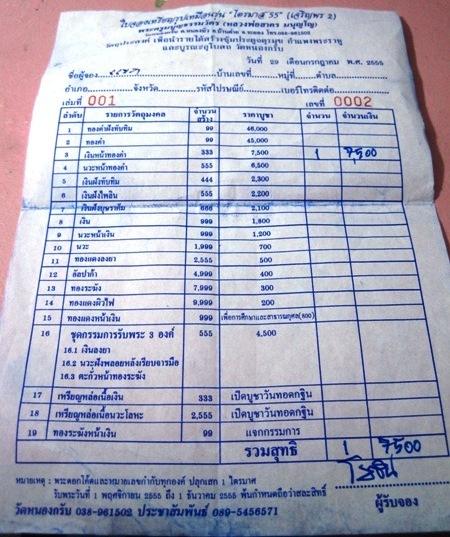 ใบจองเหรียญรูปเหมือนรุ่น "ไตรมาส 55" (เจริญพร 2)
พระครูมนูญธรรมวัตร (หลวงพ่อสาคร มนุญโญ)
วัตถุประสงค์ เพื่อนำรายได้สร้างซุ้มประตูจตุรมุข กำแพงพระราหู
และบูรณะอุโบสถ วัดหนองกรับ
วันที่ 29 เดือนกรกฎาคม พ.ศ. 2555
ชื่อผู้จอง บ้านเลขที่ หมู่ที่ ตำบล
อำเภอ จังหวัด รหัสไปรษณีย์ เบอร์โทรติดต่อ
เล่มที่ 001 เลขที่ 0002
ลำดับ รายการวัตถุมงคล จำนวนสร้าง ราคาบูชา จำนวน จำนวนเงิน
1 ทองคำฝังทับทิม 99 46,000
2 ทองคำ 99 45,000
3 เงินหน้าทองคำ 333 7,500 1 7,500
4 นวะหน้าทองคำ 555 6,500
5 เงินฝังทับทิม 444 2,300
6 เงินฝังไพลิน 555 2,200
7 เงินฝังบุษราคัม 666 2,100
8 เงิน 999 1,800
9 นวะหน้าเงิน 999 1,200
10 นวะ 1,999 700
11 ทองแดงลงยา 2,555 500
12 อัลปาก้า 4,999 400
13 ทองระฆัง 7,999 300
14 ทองแดงผิวไฟ 9,999 200
15 ทองแดงหน้าเงิน 999 เพื่อการศึกษาและสาธารณกุศล(800)
16 ชุดกรรมการรับพระ 3 องค์ 555 4,500
16.1 เงินลงยา
16.2 นวะฝังพลอยหลังเรียบจารมือ
16.3 ตะกั่วหน้าทองระฆัง
17 เหรียญหล่อเนื้อเงิน 333 เปิดบูชาวันทอดกฐิน
18 เหรียญหล่อเนื้อนวะโลหะ 2,555 เปิดบูชาวันทอดกฐิน
19 ทองระฆังหน้าเงิน 99 แจกกรรมการ
รวมสุทธิ 1 7500
หมายเหตุ : พระตอกโค๊ดและหมายเลขกำกับทุกองค์ ปลุกเสก 1 ไตรมาส
รับพระวันที่ 1 พฤศจิกายน 2555 ถึง 1 ธันวาคม 2555 พ้นกำหนดถือว่าสละสิทธิ์
ผู้รับจอง
วัดหนองกรับ 038-961502 ประชาสัมพันธ์ 089-5456571